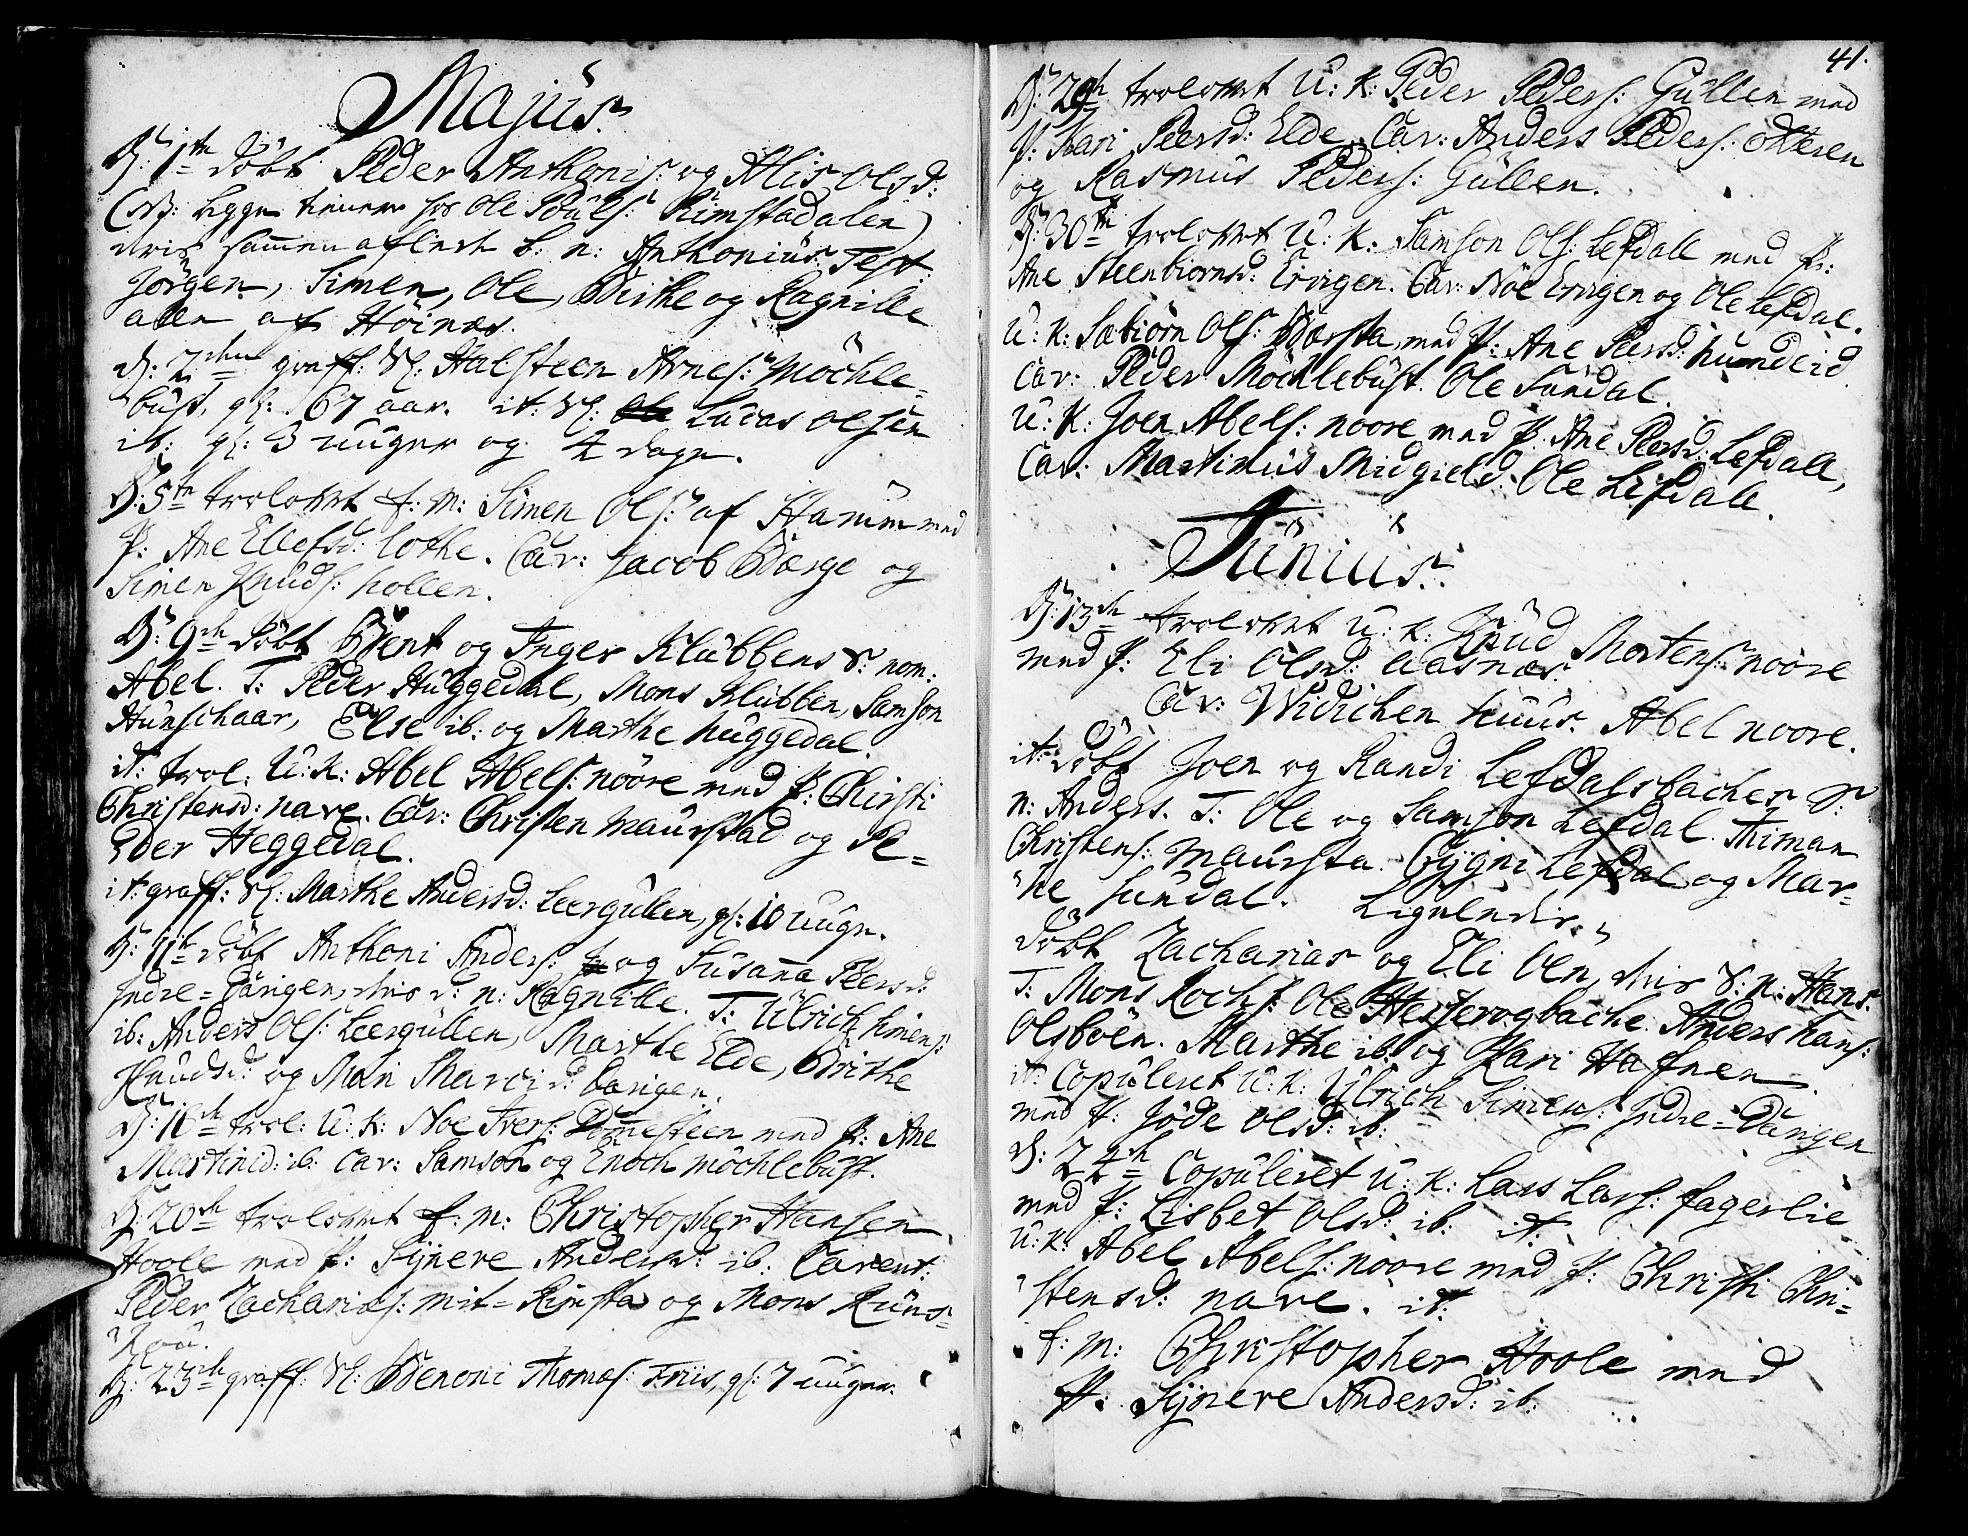 Majus.
D: 1te döbt Peder Anthonis: og Alis Olsd:
(NB: ligger hiemme hos Ole Pouls: Rimstadalen)
deris sammen aflede b. n: Anthonius. Test:
Jörgen, Simen, Ole, Birthe og Ragnille
alle af Höinæs.
D: 7de graff: Sl: Halsteen Arnes: Möchle-
bust, gl: 67 aar. it: Sl: Lucas Olsen
ib: gl: 3 uuger og 4 dage.
D: 5te trolovet S: M: Simen Ols: af Hamm med
P: Ane Ellefsd: Lothe. Cav: Jacob Berge og
Simen Knuds: Hollen.
D: 9de döbt Bent og Inger Klubbens S: nom:
Abel. T: Peder Huggedal, Mons Klubben, Samson
Hunschaar, Else ib: og Marthe Huggedal.
it: trol: U: K: Abel Abels: Nöore med P: Christi
Christensd: Nave. Cav: Christen Maurstad og Pe-
der Heggedal.
it: graff: Sl: Marthe Andersd: Leergullen, gl: 10 uuger.
D: 11te döbt Anthoni Anders: og Susanna Peersd:
Indre-Oarigen, deris d: n: Ragnille. T: Ulrich Simens:
ib: Anders Ols: Leergullen, Marthe Elde, Birthe
Knudsd: og Mari Marcisd: Oarigen.
D: 16de trol: U: K: Noe Ivers: Dönesteen med P: Ane
Martinid: ib: Cav: Samson og Enoch Möchlebust.
D: 20de trolovet S: M: Christopher Hansen
Hoole med P: Sÿneve Andersd: ib: Cavent:
Peder Zacharies: Mit-Rimsta og Mons Runs-
D: 23de graff: Sl: Benoni Thomes: Friis, gl: 7 uuger.
41.
D: 29de trolovet U: K: Peder Peders: Gullen med
P: Kari Peersd: Elde. Cav: Anders Peders: Otteren
og Rasmus Peders: Gullen.
D: 30te trolovet U: K: Samson Ols: Lefdall med P:
Ane Steenbiornsd: Ervigen. Cav: Noe Ervigen og Ole Lefdal.
U: K: Sæbiörn Ols: Bærsta med P: Ane Peersd: Hundeid
Cav: Peder Möchlebust. Ole Sundal.
U: K: Joen Abels: Noore med P: Ane Peersd: Lefdall,
Cav: Martinus Midgield. Ole Lefdall.
Junius.
D: 13de trolovet U: K: Knud Mortens: Noore
med P: Eli Olsd: Aasnæs.
Cav: Widichen Huus. Abel Noore.
it: Döbt Joen og Randi Lefdalsbaches S:
n: Anders. T: Ole og Samson Lefdal. Thiman
Christens: Maursta. Gÿgni Lefdal og Mar-
the Sundal. Ligeledis
Döbt Zacharias og Eli Öen, deris S: n: Hans.
T: Mons Rochs: Ole Hesterogbache. Anders Hans:
Olsböen. Marthe ib: og Kari Hafnen.
it: Copuleret U: K: Ulrich Simens: Indre-Oarigen
med P: Jöde Olsd: ib:
D: 24de Copuleret U: K: Lass Lars: Fagerlie
med P: Lisbet Olsd: ib: it:
U: K: Abel Abels: Noore med P: Christi Chri-
stensd: Nave. it:
S: M: Christopher Hoole med
P: Sÿneve Andersd: ib: